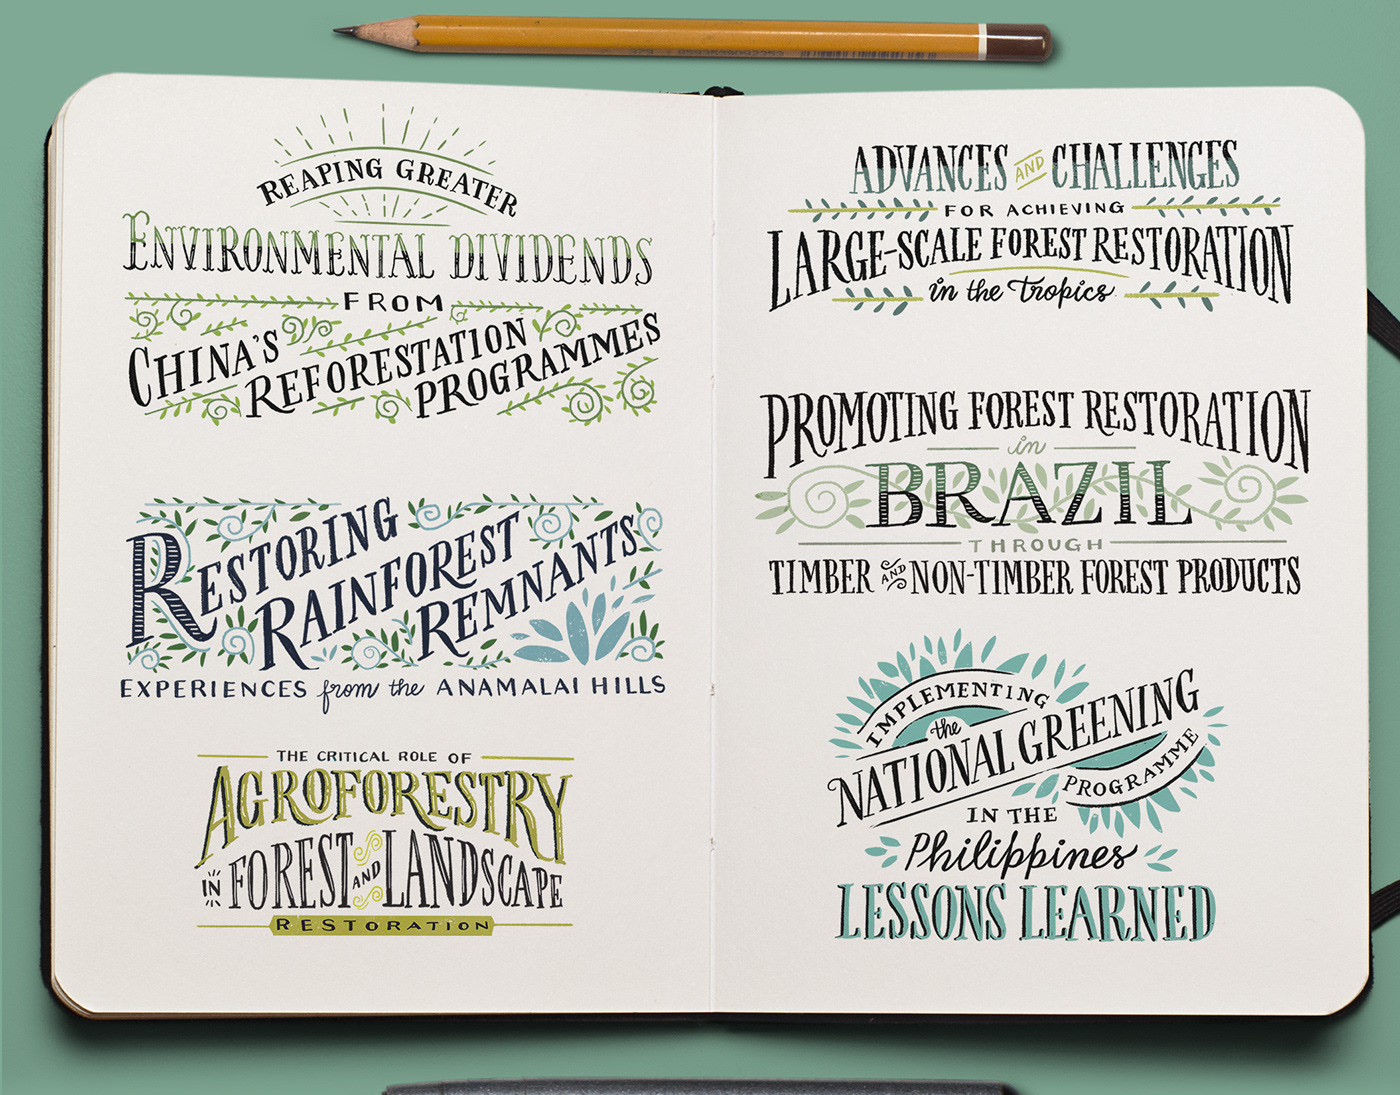 REAPING GREATER
ENVIRONMENTAL DIVIDENDS
FROM
CHINA'S
REFORESTATION
PROGRAMMES
RESTORING
RAINFOREST
REMNANTS
EXPERIENCES from the ANAMALAI HILLS
THE CRITICAL ROLE OF
AGROFORESTRY
IN FOREST AND LANDSCAPE
RESTORATION
ADVANCES AND CHALLENGES
FOR ACHIEVING
LARGE-SCALE FOREST RESTORATION
in the Tropics
PROMOTING FOREST RESTORATION
in
BRAZIL
THROUGH
TIMBER AND NON-TIMBER FOREST PRODUCTS
IMPLEMENTING
the
NATIONAL GREENING
PROGRAMME
IN THE
Philippines
LESSONS LEARNED